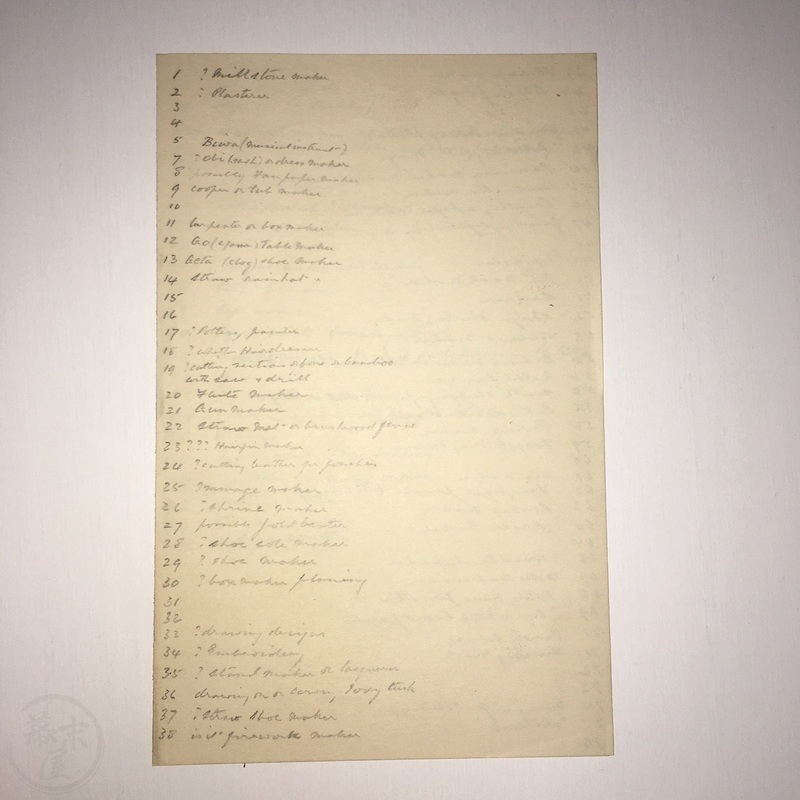 1 ? Millstone maker
2 ? Plasterer
3
4
5 Biwa (musical instrument)
7 ? Obi (sash) or dress maker
8 possibly Fan paper maker
9 cooper or tub maker
10
11 Carpenter or box maker
12 Go (game) Table maker
13 Geta (clog) shoe maker
14 Straw rainhat
15
16
17 ? Pottery painter
18 ? Hairdresser
19 ? cutting sections of bone or bamboo
with saw & drill
20 Flute maker
21 Gun maker
22 Straw mat or brushwood fence
23 ??? Hairpin maker
24 ? cutting leather for pouches
25 ? Immage maker
26 ? Shrine maker
27 possible Gold beater
28 ? shoe sole maker
29 ? shoe maker
30 ? box maker planing
31
32
33 ? drawing designs
34 ? Embroidery
35 ? Stand maker or laquerer
36 drawing on or carving Ivory tusk
37 ? Straw shoe maker
38 is it firework maker
幕末屋